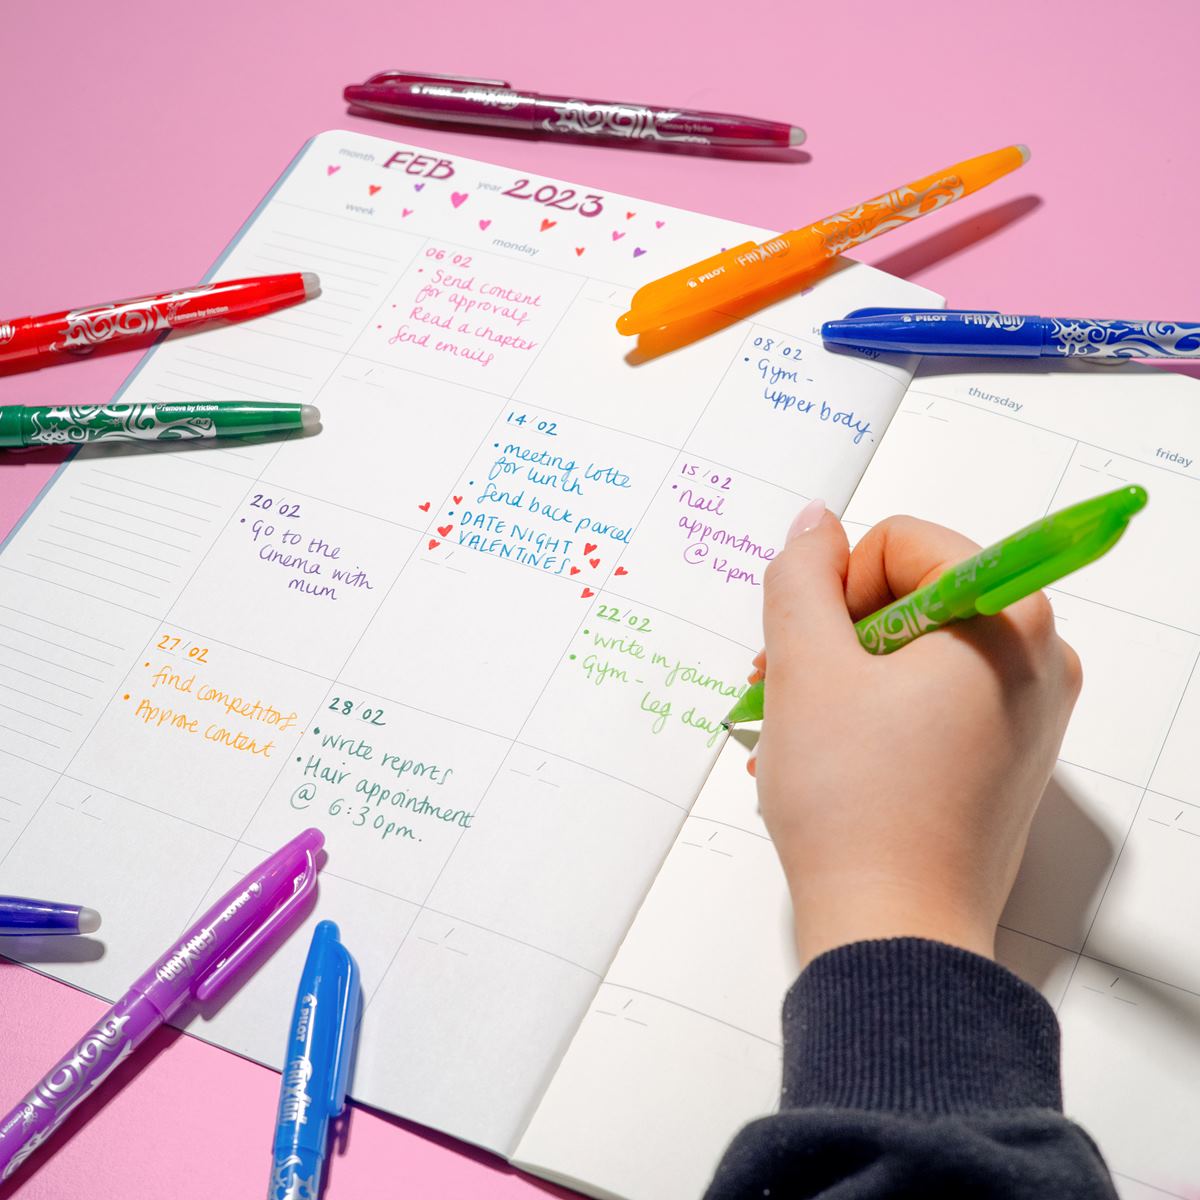 PILOT FRIXION remove by friction
month FEB year 2023
week
monday
06/02
• Send content
for approvals
• Read a chapter
• Send emails
PILOT FRIXION
PILOT FRIXION
08/02
• Gym -
upper body.
thursday
friday
remove by friction
remove by friction
14/02
• meeting lotte
for lunch
• Send back parcel
• DATE NIGHT
VALENTINES
15/02
• nail
appointme
@ 12pm
20/02
• Go to the
cinema with
mum
22/02
• write in journal
• Gym -
leg day
27/02
• find competitors.
• Approve content
28/02
• write reports
• Hair appointment
@ 6:30pm.
PILOT FRIXION
PILOT FRIXION